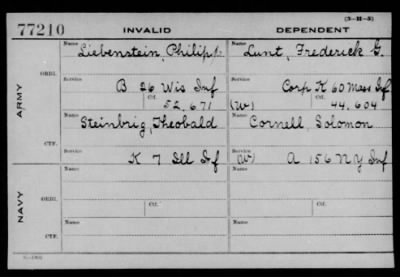 (3-H-5)
77210 INVALID DEPENDENT
Name Name
Liebenstein, Philipp Lunt, Frederick G.
ORIG. Service Service
B 26 Wis Inf Corp K 60 Mass Inf
Ctf. Ctf.
52,671 (W) 44.604
ARMY
Name Name
Steinbrig, Theobald Cornell, Solomon
CTF. Service Service
K 7 Ill Inf (W) A 156 N Y Inf
Name Name
ORIG. Service Service
Ctf. Ctf.
NAVY
Name Name
CTF. Service Service